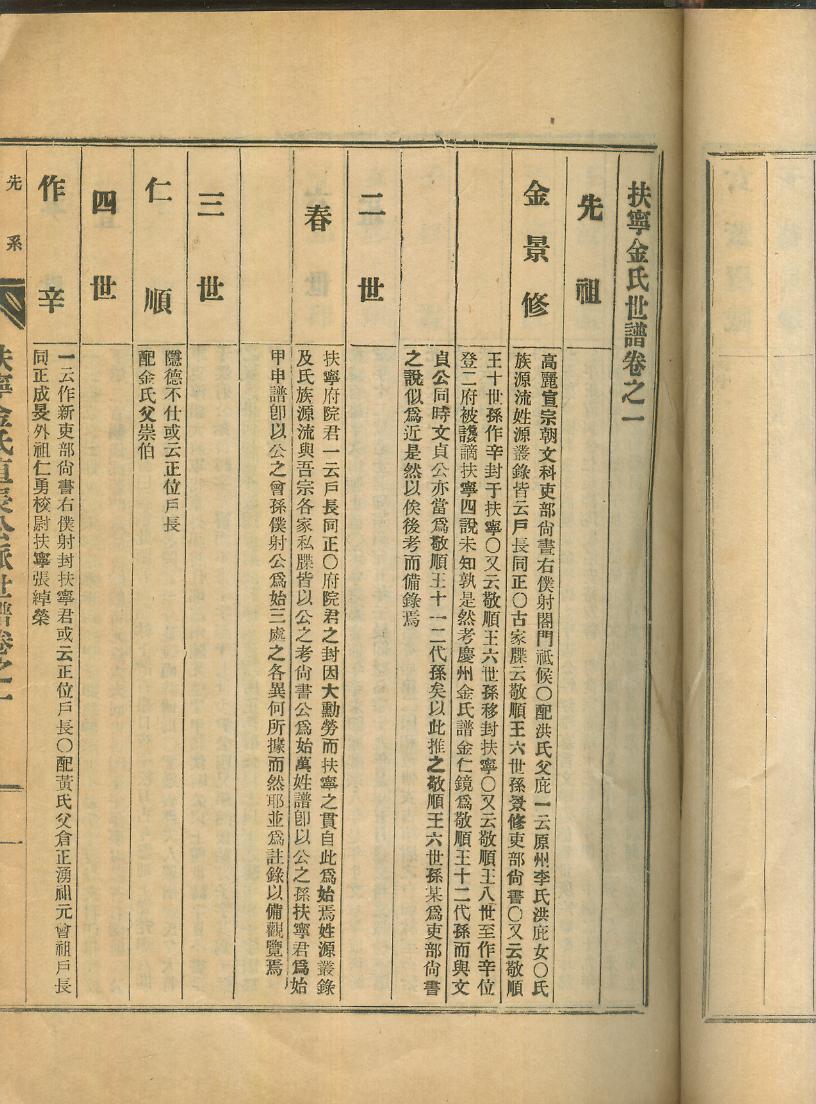 扶寧金氏世譜卷之一
先祖
金景修
高麗宣宗朝文科吏部尙書右僕射閤門祗候〇配洪氏父庇一云原州李氏洪庇女〇氏
族源流姓源叢錄皆云戶長同正〇古家牒云敬順王六世孫景修吏部尙書〇又云敬順
王十世孫作辛封于扶寧〇又云敬順王六世孫移封扶寧〇又云敬順王八世至作辛位
登二府被謫扶寧四說未知孰是然考慶州金氏譜金仁鏡爲敬順王十二代孫而與文
貞公同時文貞公亦當爲敬順王十一二代孫矣以此推之敬順王六世孫某爲吏部尙書
之說似爲近是然以俟後考而備錄焉
二世
春
扶寧府院君一云戶長同正〇府院君之封因大勳勞而扶寧之貫自此爲始焉姓源叢錄
及氏族源流與吾宗各家私牒皆以公之考尙書公爲始萬姓譜卽以公之孫扶寧君爲始
甲申譜卽以公之曾孫僕射公爲始三處之各異何所據而然耶並爲註錄以備觀覽焉
三世
仁順
隱德不仕或云正位戶長
配金氏父崇伯
四世
作辛
一云作新吏部尙書右僕射封扶寧君或云正位戶長〇配黃氏父倉正湧祖元曾祖戶長
同正成旻外祖仁勇校尉扶寧張綽榮
先系
扶寧金氏直長公派世譜卷之一